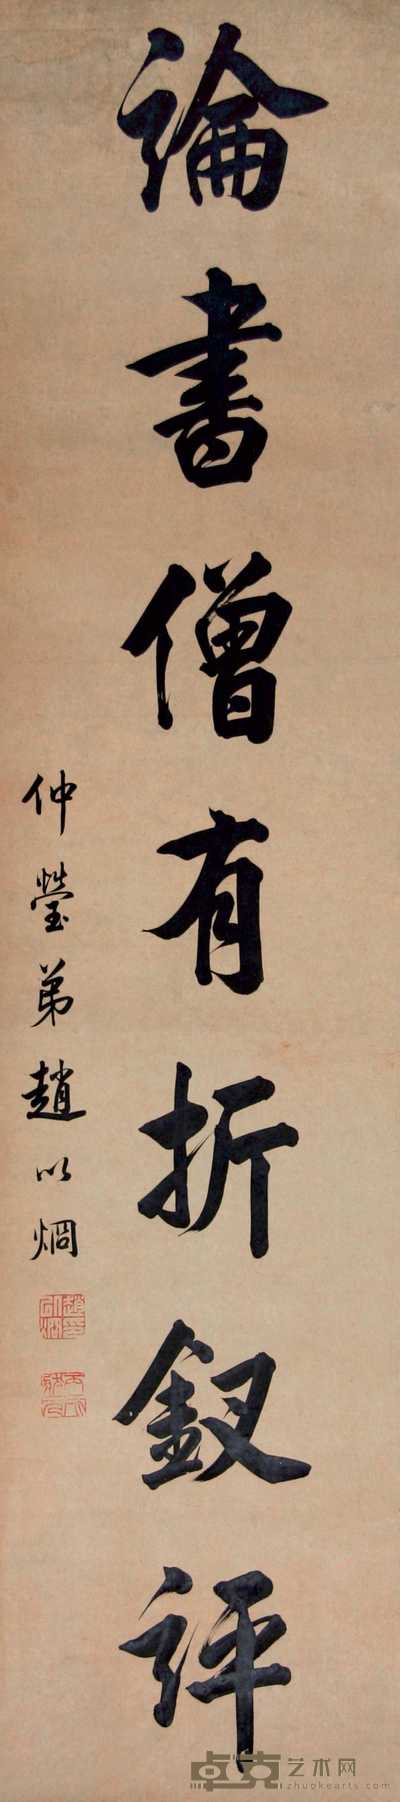 論書僧有折釵評
仲瑩弟趙以炯
卓克艺术网
zhuokearts.com